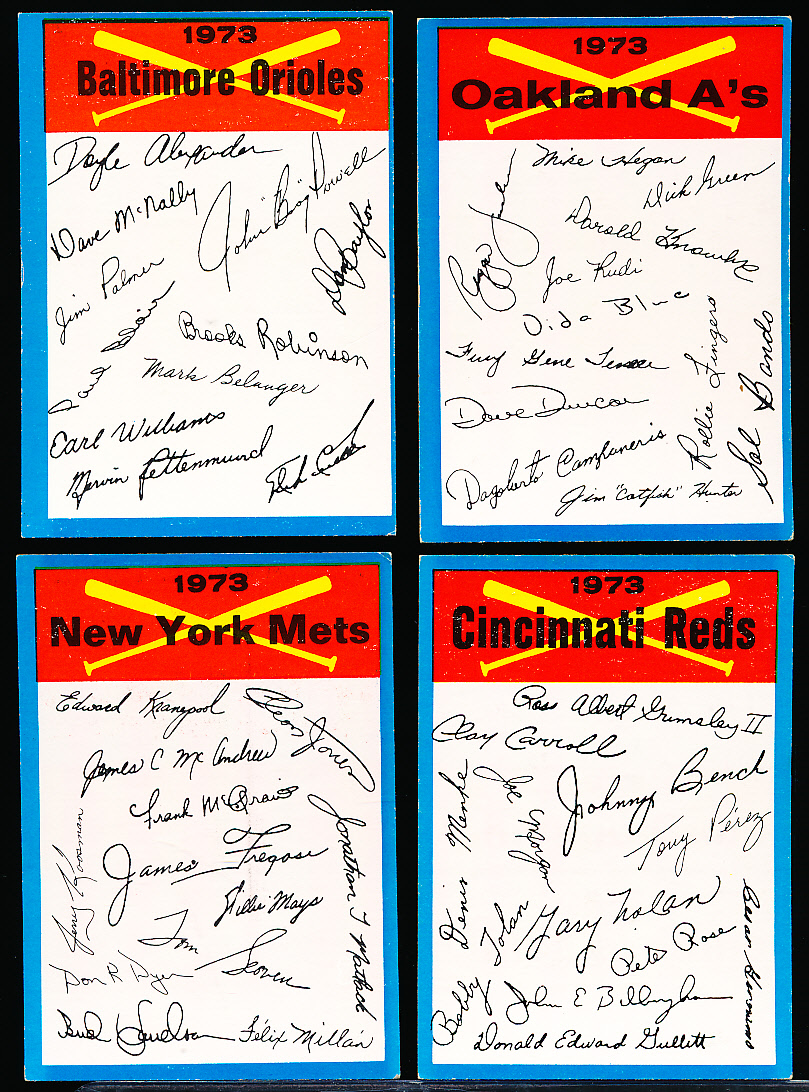 1973
Baltimore Orioles
Doyle Alexander
Dave McNally
John "Boog" Powell
Don Baylor
Jim Palmer
Paul Blair
Brooks Robinson
Mark Belanger
Earl Williams
Mervin Rettenmund
1973
Oakland A's
Mike Hegan
Dick Green
Darold Knowles
Joe Rudi
Vida Blue
Fury Gene Tenace
Rollie Fingers
Sal Bando
Dave Duncan
Dagoberto Campaneris
Jim "Catfish" Hunter
1973
New York Mets
Edward Kranepool
Cleon Jones
James C McAndrew
Frank McGraw
Jonathan T Matlack
Jerry Koosman
James Fregosi
Willie Mays
Tom Seaver
Don R. Dyer
Bud Harrelson
Félix Millán
1973
Cincinnati Reds
Ross Albert Grimsley II
Clay Carroll
Johnny Bench
Denis Menke
Joe Morgan
Tony Pérez
Gary Nolan
Bobby Tolan
Pete Rose
Cesar Geronimo
John E Billingham
Donald Edward Gullett